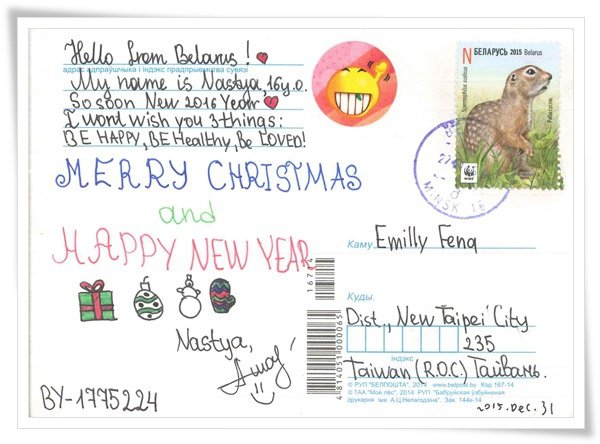 Hello from Belarus!
адрас адпраўшчыка і індэкс прадпрыемства сувязі
My name is Nastya, 16y.o.
So soon New 2016 Year
I wont wish you 3 things:
BE HAPPY, BE Healthy, Be LOVED!
MERRY CHRISTMAS
and
HAPPY NEW YEAR
Nastya,
BY-1775224
N БЕЛАРУСЬ 2015 Belarus
Spermophilus suslicus
Рабы суслік
WWF
MINSK
Каму Emilly Feng
Куды
Dist., New Taipei City
235
індэкс
Taiwan (R.O.C) Тайвань.
© РУП "БЕЛПОШТА", 2014 www.belpost.by Код 167-14
© ТАА "Мой лёс", 2014 РУП "Бабруйская ўзбуйненая
друкарня імя А.Ц.Непагодзіна". Зак. 144к-14
2015.Dec.31
167-14
4814051000065